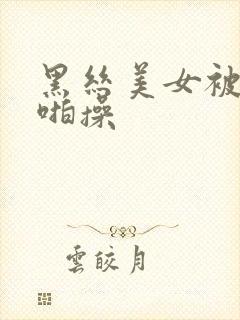 黑丝美女被
啪操
雲皎月